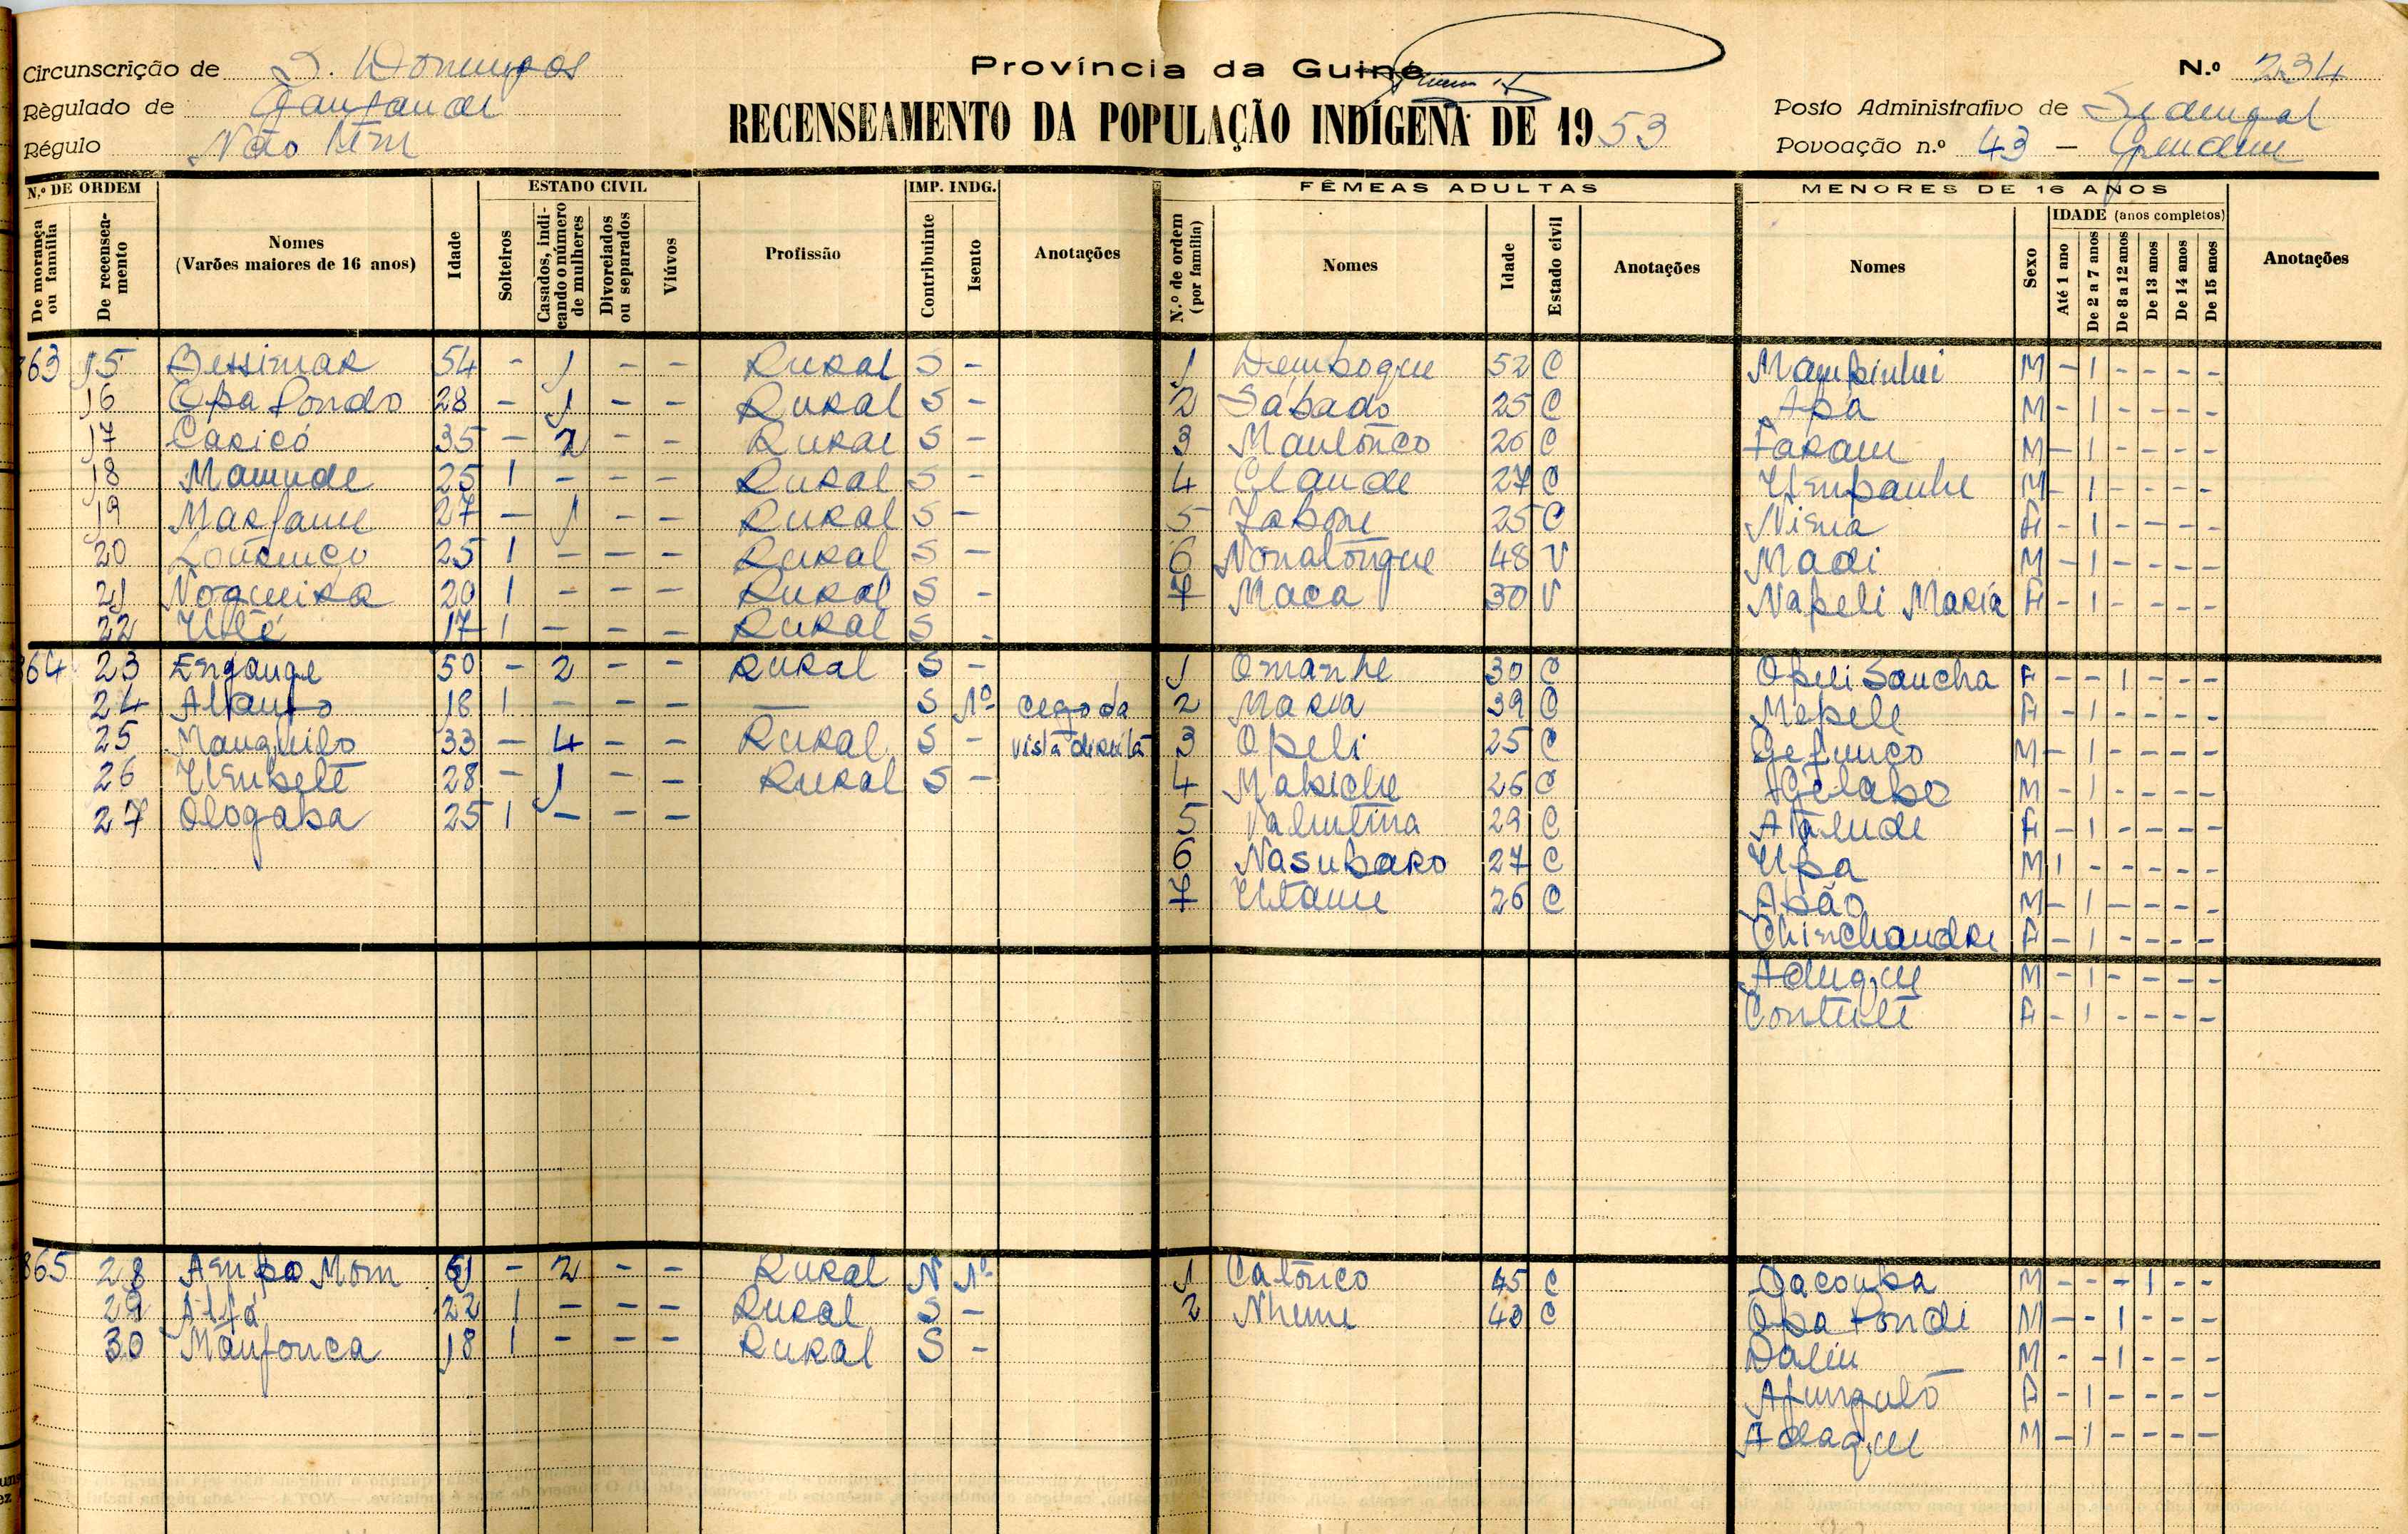 Circunscrição de S. Domingos
Província da Guiné
N.º 234
Règulado de
RECENSEAMENTO DA POPULAÇÃO INDÍGENA DE 1953
Posto Administrativo de Sedengal
Régulo Não tem
Povoação n.º 43 –
N.º DE ORDEM ESTADO CIVIL IMP. INDG. FÊMEAS ADULTAS MENORES DE 16 ANOS
De morança ou família De recenseamento Nomes (Varões maiores de 16 anos) Idade Solteiros Casados, indicando o número de mulheres Divorciados ou separados Viúvos Profissão Contribuinte Isento Anotações N.º de ordem (por família) Nomes Idade Estado civil Anotações Nomes Sexo IDADE (anos completos) Até 1 ano De 2 a 7 anos De 8 a 12 anos De 13 anos De 14 anos De 15 anos Anotações
863 15 Bessimar 54 - 1 - - Rural S - 1 Demboque 52 C M - 1 - - - -
16 28 - 1 - - Rural S - 2 Sábado 25 C Apá M - 1 - - - -
17 Caricó 35 - 2 - - Rural S - 3 Mantônco 26 C Faram M - 1 - - - -
18 Mamude 25 1 - - - Rural S - 4 Clande 27 C M - 1 - - - -
19 Marfame 27 - 1 - - Rural S - 5 25 C Niena F - 1 - - - -
20 Lourenço 25 1 - - - Rural S - 6 Nonatongue 48 V Madi M - 1 - - - -
21 Nogueira 20 1 - - - Rural S - 7 Maca 30 V Napeli Maria F - 1 - - - -
22 17 1 - - - Rural S -
864 23 Engange 50 - 2 - - Rural S - 1 Omanhe 30 C Opeli Sancha F - - 1 - - -
24 18 1 - - - — S Nº cego da 2 Maria 39 C Mepele F - 1 - - - -
25 Manquilo 33 - 4 - - Rural S - vista direita 3 Opeli 25 C M - 1 - - - -
26 28 - 1 - - Rural S - 4 Mabiche 26 C M - 1 - - - -
27 Ologaba 25 1 - - - 5 Valentina 29 C F - 1 - - - -
6 Nasubaro 27 C M 1 - - - - -
7 26 C Apão M - 1 - - - -
Chinchandre F - 1 - - - -
M - 1 - - - -
F - 1 - - - -
865 28 61 - 2 - - Rural N Nº 1 Catônco 45 C Dacomba M - - - 1 - -
29 Alfá 22 1 - - - Rural S - 2 Nheme 40 C Opa Fondi M - - 1 - - -
30 Manfonca 18 1 - - - Rural S - M - - 1 - - -
F - 1 - - - -
M - 1 - - - -